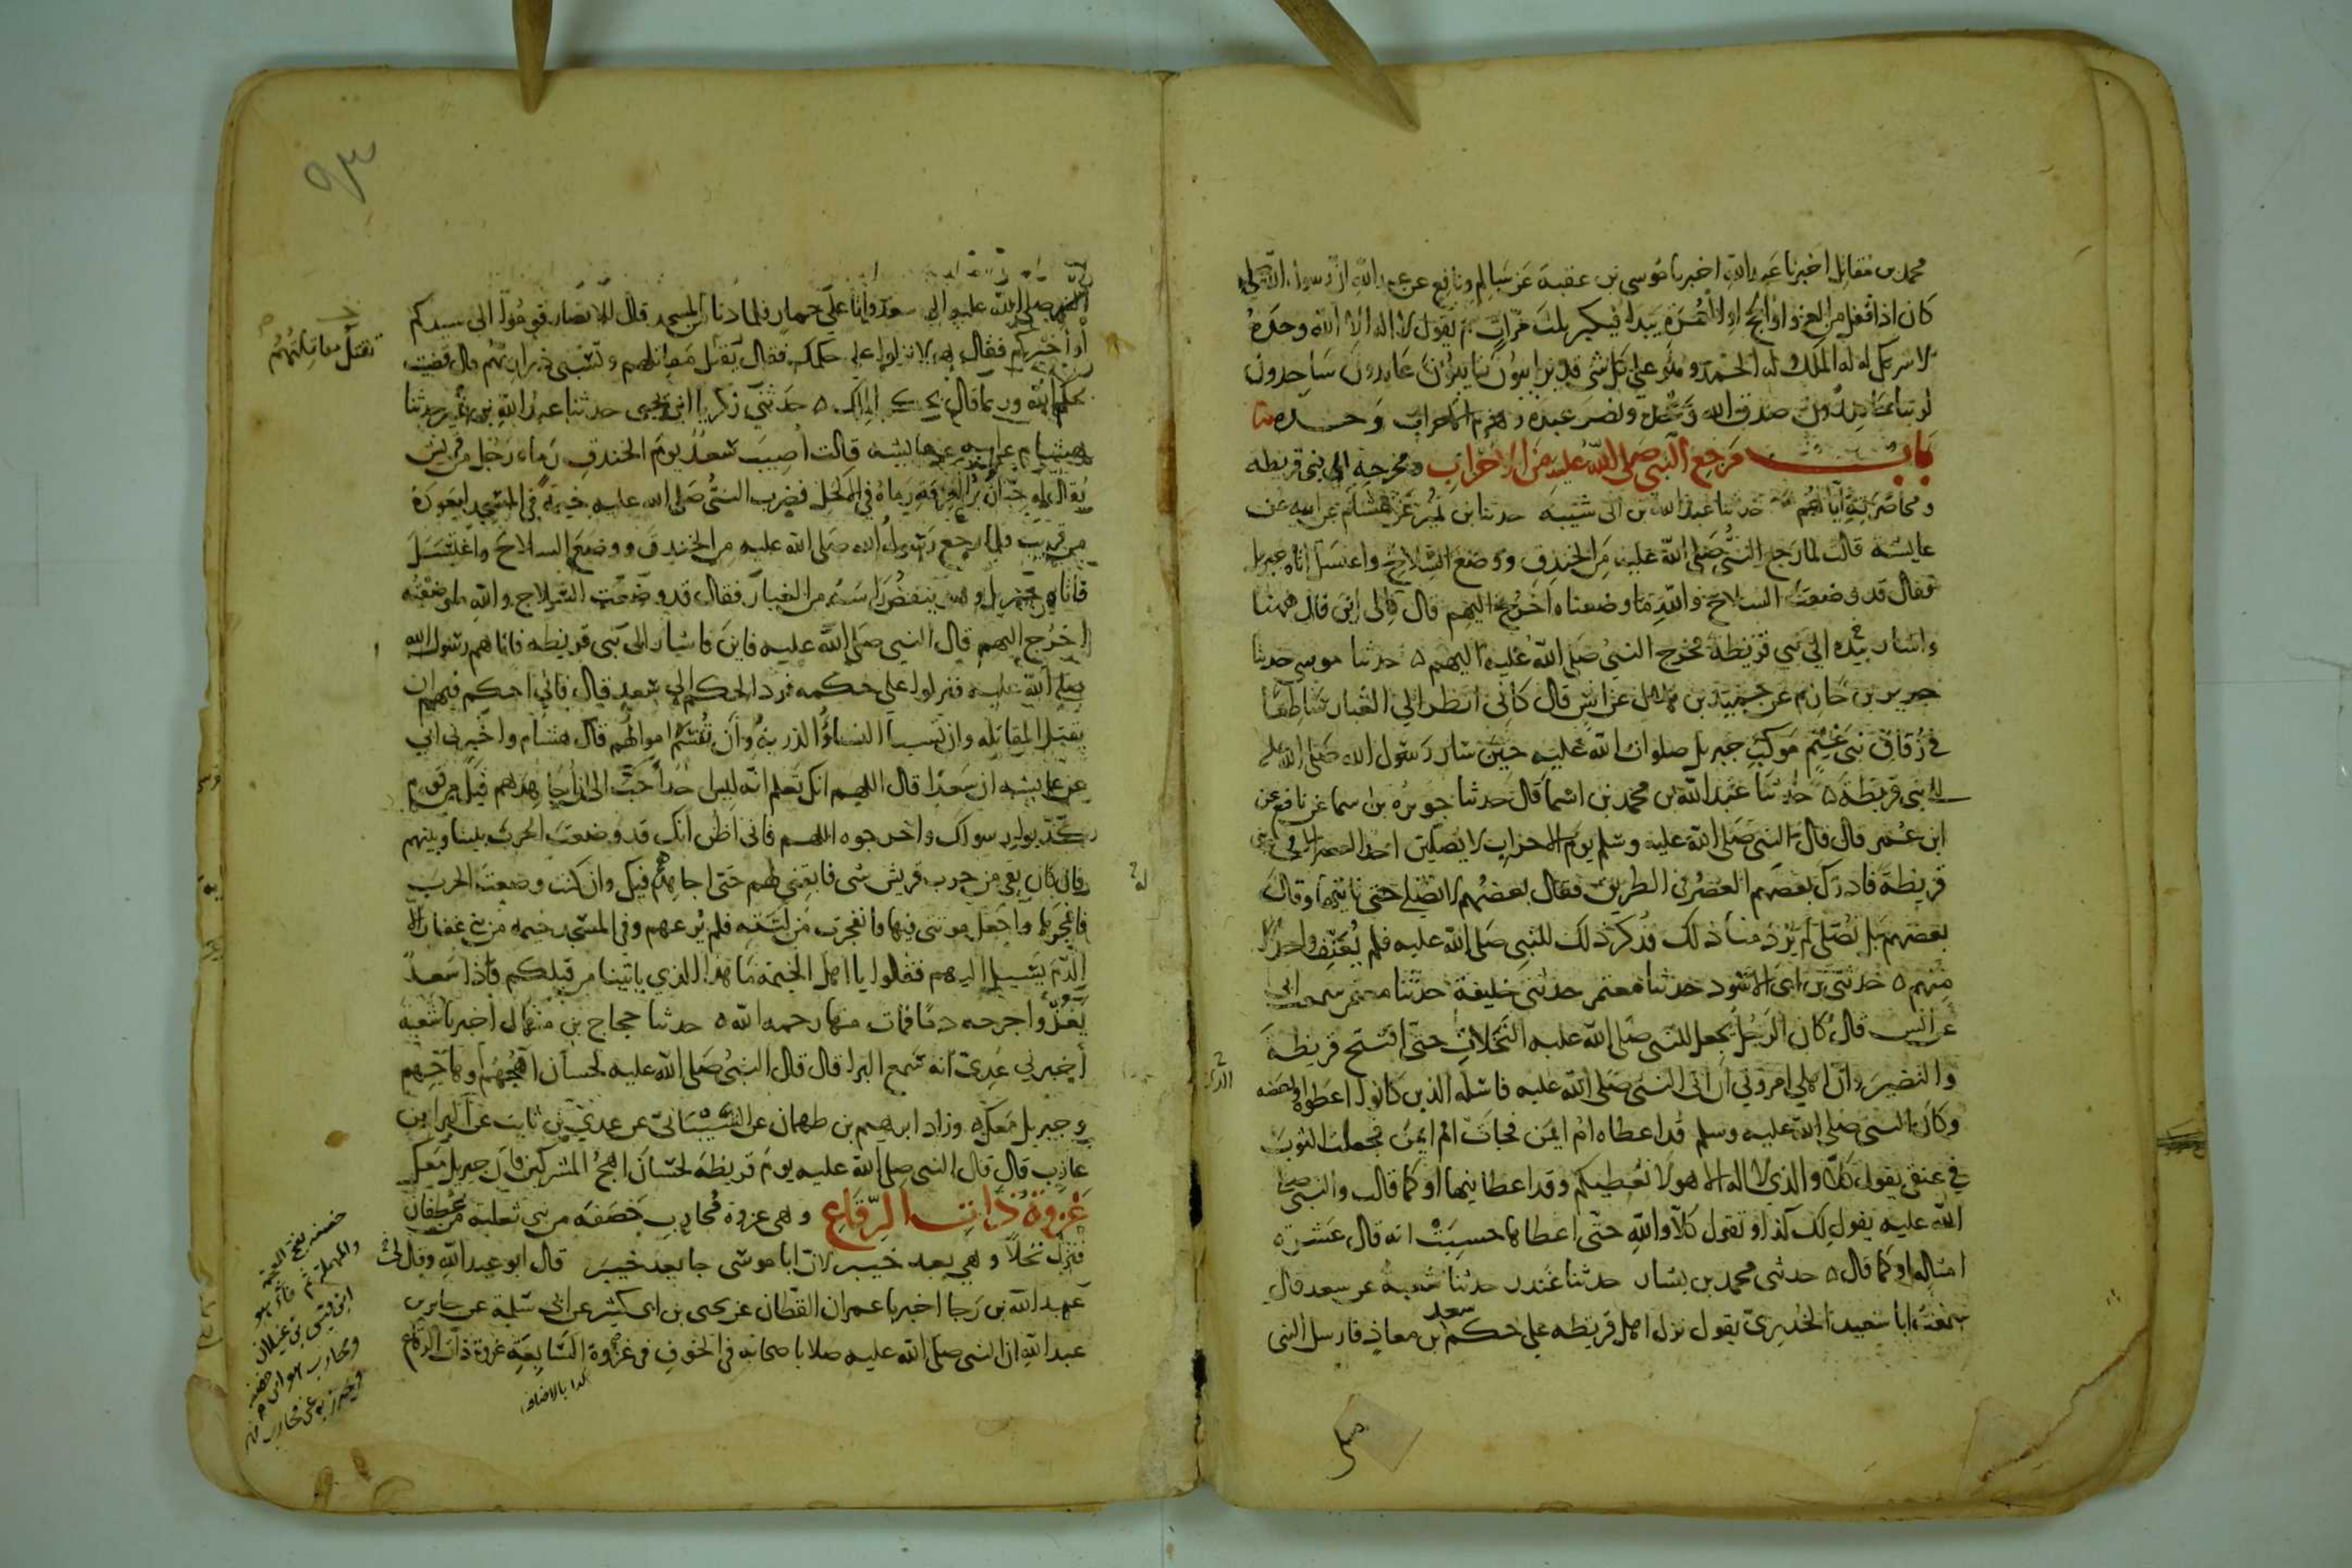 محمد بن مقاتل اخبرنا عبد الله اخبرنا موسى بن عقبة عن سالم ونافع عن عبد الله ان رسول الله صلى
كان اذا قفل من الغزو او الحج او العمرة يبدا فيكبر ثلث مرات ثم يقول لا اله الا الله وحده
لا شريك له له الملك وله الحمد وهو على كل شى قدير ايبون تايبون عابدون ساجدون
لربنا حامدون صدق الله وعده ونصر عبده وهزم الاحزاب وحده
باب مرجع النبي صلى الله عليه من الاحزاب ومخرجه الى بنى قريظه
ومحاصرته اياهم حدثنا عبد الله بن ابى شيبه حدثنا بن نمير عن هشام عن ابيه عن
عايشه قالت لما رجع النبى صلى الله عليه من الخندق ووضع السلاح واغتسل اتاه جبريل
فقال قد وضعت السلاح والله ما وضعناه اخرج اليهم قال فالى اين قال ههنا
واشار بيده الى بنى قريظة فخرج النبى صلى الله عليه اليهم ٥ حدثنا موسى حدثنا
جرير بن حازم عن حميد بن هلال عن انس قال كانى انظر الى الغبار ساطعا
فى زقاق بنى غنم موكب جبريل صلوات الله عليه حين سار رسول الله صلى الله عليه
الى بنى قريظة ٥ حدثنا عبد الله بن محمد بن اسما قال حدثنا جويريه بن اسما عن نافع عن
ابن عمر قال قال النبى صلى الله عليه وسلم يوم الاحزاب لا يصلين احد العصر الا فى بنى
قريظة فادرك بعضهم العصر فى الطريق فقال بعضهم لا نصلى حتى ناتيها وقال
بعضهم بل نصلى لم يرد منا ذلك فذكر ذلك للنبى صلى الله عليه فلم يعنف واحدا
منهم ٥ حدثنى بن ابى الاسود حدثنا معتمر حدثنى خليفة حدثنا معتمر سمعت ابى
عن انس قال كان الرجل يجعل للنبى صلى الله عليه النخلات حتى افتتح قريظة
والنضير وان اهلى امرونى ان اتى النبى صلى الله عليه فاسله الذين كانوا اعطوه او بعضه
وكان النبى صلى الله عليه وسلم قد اعطاه ام ايمن فجات ام ايمن فجعلت الثوب
فى عنقى يقول كلا والذى لا اله الا هو لا نعطيكم وقد اعطانيها او كما قالت والنبى صلى
الله عليه يقول لك كذا وتقول كلا والله حتى اعطاها حسبت انه قال عشرة
امثاله او كما قال ٥ حدثنى محمد بن بشار حدثنا غندر حدثنا شعبة عن سعد قال
سمعت ابا سعيد الخدرى يقول نزل اهل قريظه على حكم سعد بن معاذ فارسل النبى
النبى صلى الله عليه الى سعد واتا على حمار فلما دنا من المسجد قال للانصار قوموا الى سيدكم
او اخيركم فقال هولا نزلوا على حكمك فقال تقتل مقاتلهم وتسبى ذراريهم قال قضيت
تقتل مقاتلتهم
بحكم الله وربما قال بحكم الملك ٥ حدثنى زكريا ابن يحيى حدثنا عبد الله بن نمير حدثنا
هشام عن ابيه عن عايشه قالت اصيب سعد يوم الخندق رماه رجل من قريش
يقال له حبان بن العرقه رماه فى الاكحل فضرب النبى صلى الله عليه خيمة فى المسجد ليعوده
من قريب فلما رجع رسول الله صلى الله عليه من الخندق ووضع السلاح واغتسل
فاتاه جبريل وهو ينفض راسه من الغبار فقال قد وضعت السلاح والله ما وضعته
اخرج اليهم قال النبى صلى الله عليه فاين فاشار الى بنى قريظه فاتاهم رسول الله
صلى الله عليه فنزلوا على حكمه فرد الحكم الى سعد قال فانى احكم فيهم ان
تقتل المقاتله وان تسبا النساء والذريه وان تقسم اموالهم قال هشام واخبرنى ابى
عن عايشه ان سعدا قال اللهم انك تعلم انه ليس احد احب الى ان اجاهدهم فيك من قوم
كذبوا رسولك واخرجوه اللهم فانى اظن انك قد وضعت الحرب بيننا وبينهم
فان كان بقى من حرب قريش شى فابقنى لهم حتى اجاهدهم فيك وان كنت وضعت الحرب
فافجرها واجعل موتتى فيها فانفجرت من لبته فلم يرعهم وفى المسجد خيمه من بنى غفار الا
الدم يسيل اليهم فقالوا يا اهل الخيمة ما هذا الذي ياتينا من قبلكم فاذا سعد
يغذوا جرحه دما فمات منها رحمه الله ٥ حدثنا حجاج بن منهال اخبرنا شعبة
اخبرنى عدى انه سمع البرا قال قال النبى صلى الله عليه لحسان اهجهم او هاجهم
وجبريل معك ٥ وزاد ابرهيم بن طهمان عن الشيبانى عن عدى بن ثابت عن البرا بن
عازب قال قال النبى صلى الله عليه يوم قريظه لحسان اهج المشركين فان جبريل معك
غزوة ذات الرقاع وهى غزوة محارب خصفه من بنى ثعلبة من غطفان
فنزل نخلا وهى بعد خيبر لان ابا موسى جا بعد خيبر قال ابو عبد الله وقال لى
عبد الله بن رجا اخبرنا عمران القطان عن يحيى بن ابى كثير عن ابى سلمة عن جابر بن
عبد الله ان النبى صلى الله عليه صلا باصحابه فى الخوف فى غزوة السابعة غزوة ذات الرقاع
كذا بالاضافه